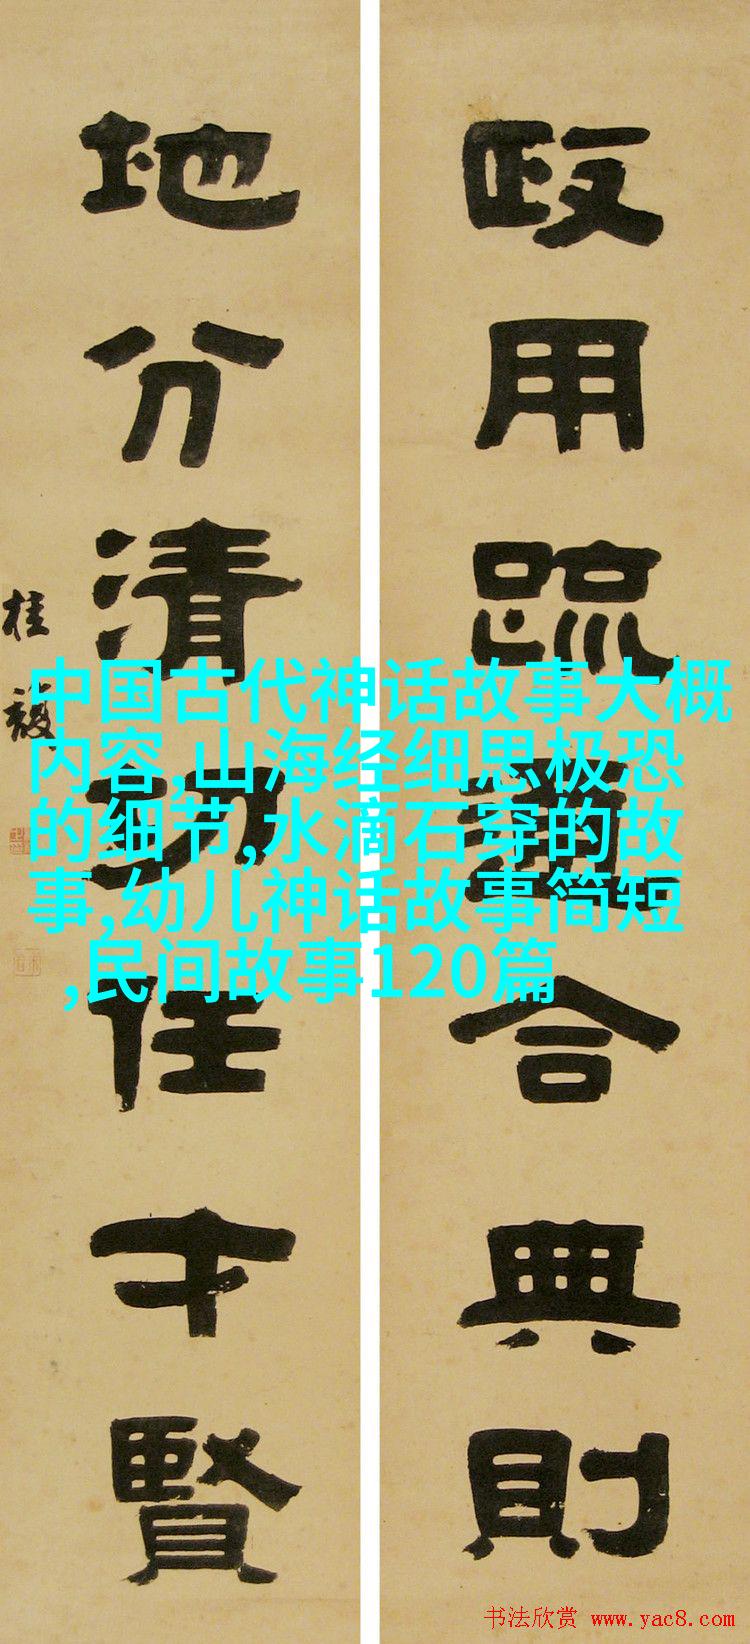 政用疏通合典則
地分清切任才賢
桂馥
中国古代神话故事大概
内容,山海经细思极恐
的细节,水滴石穿的故
事,幼儿神话故事简短
,民间故事120篇
书法欣赏 www.yac8.com